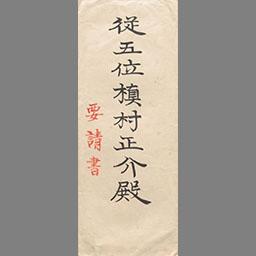 従五位槙村正介殿
要請書